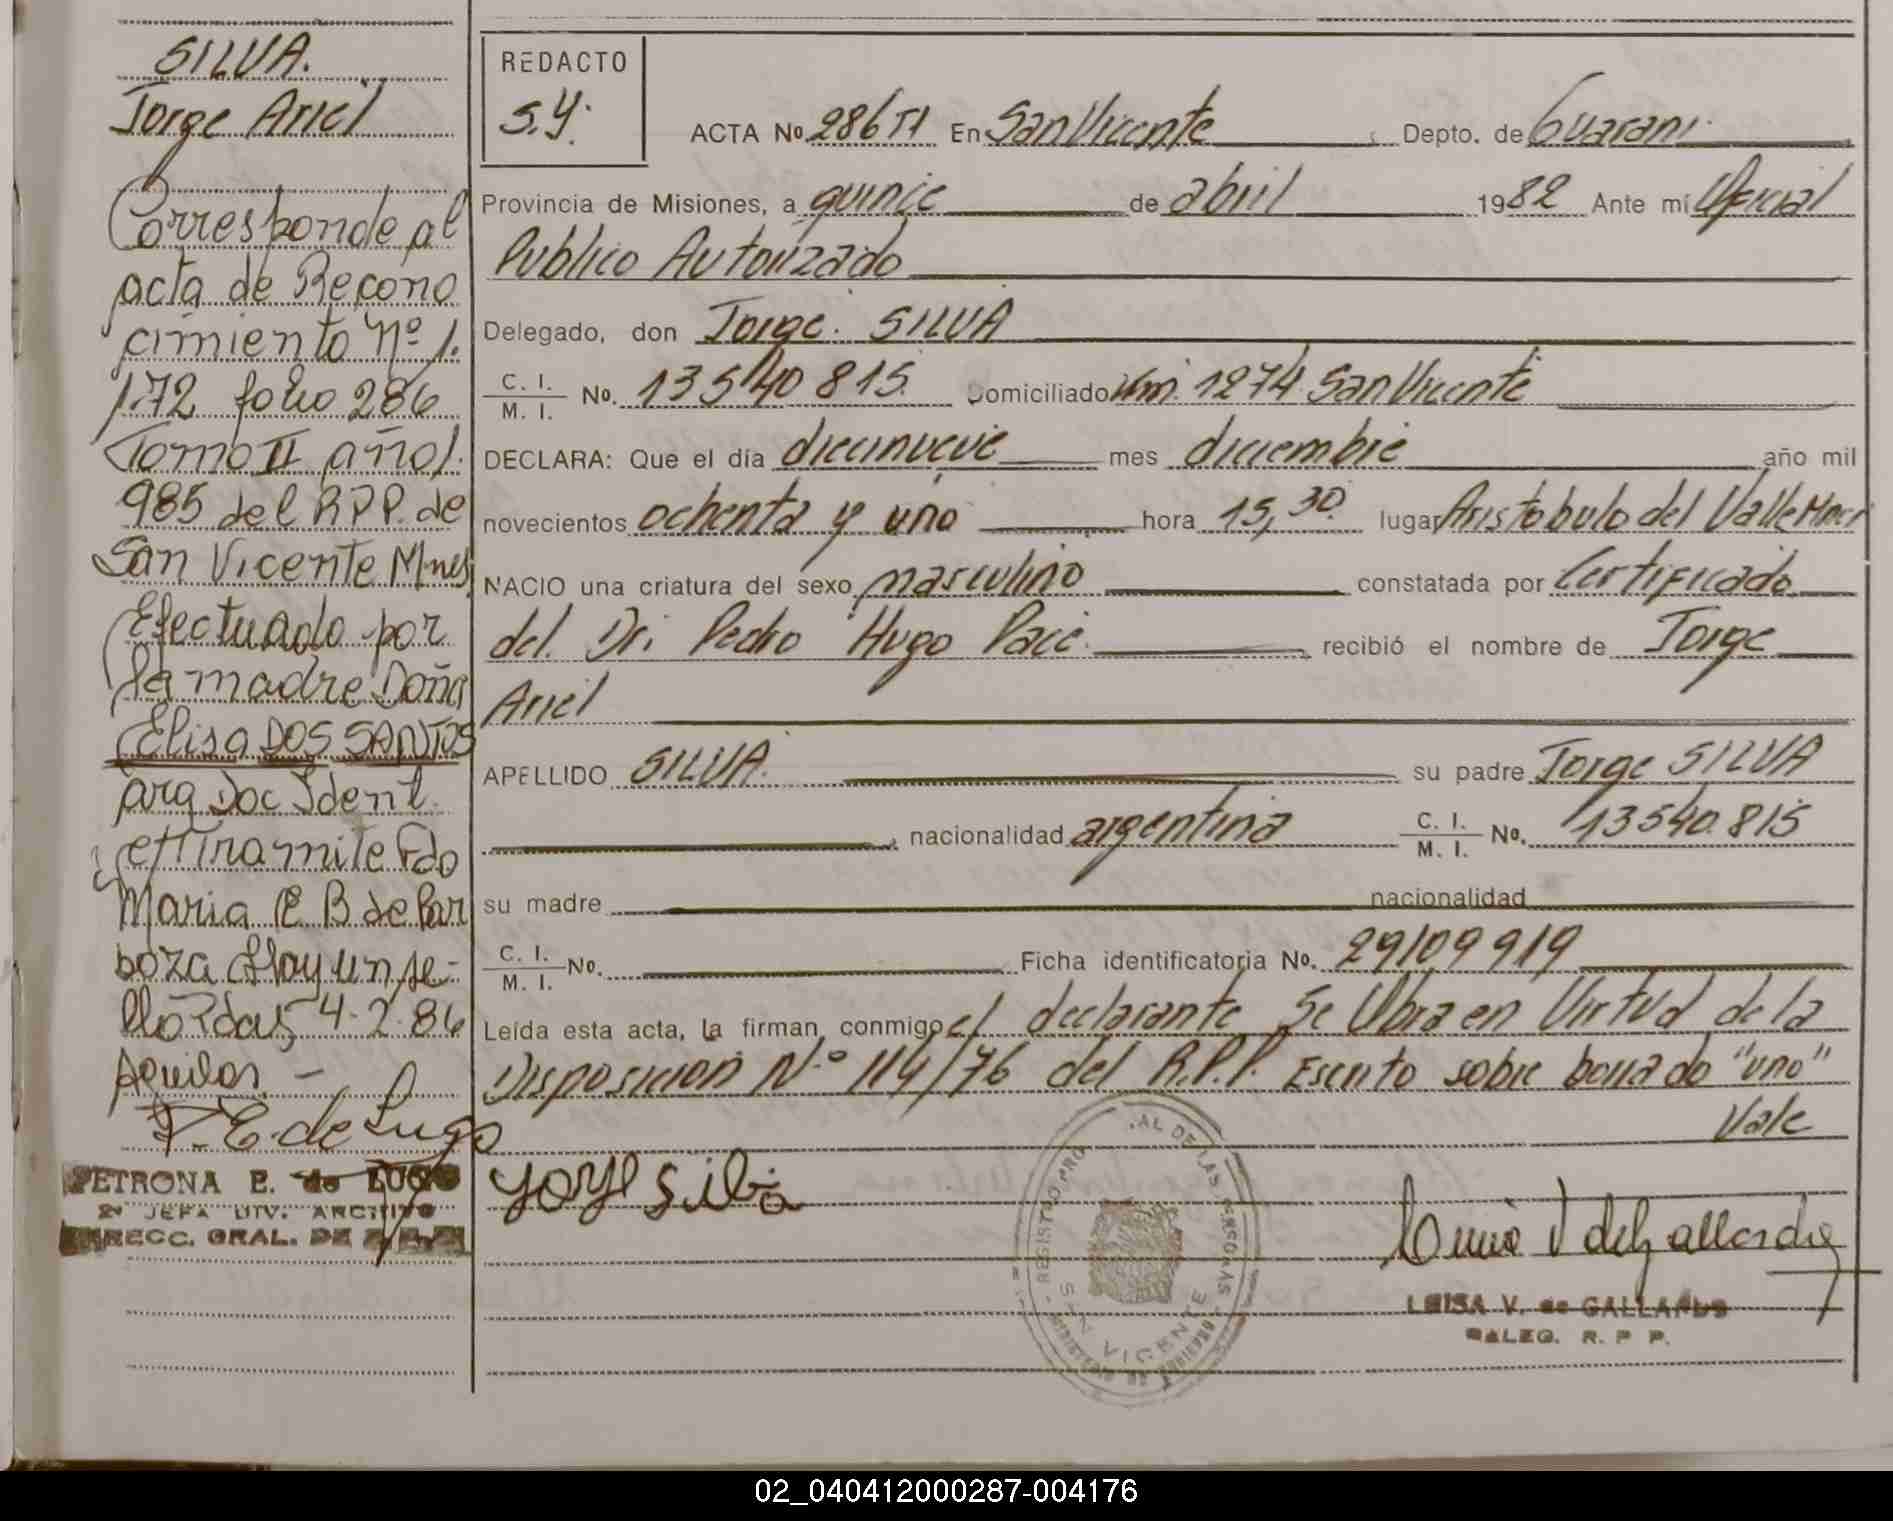 SILVA.
Jorge Ariel
Corresponde al
acta de Recono
cimiento Nº 1.
172 folio 286
Tomo II año 1.
985 del R.P.P. de
San Vicente Mnes
Efectuado por
la madre Doña
Elisa DOS SANTOS
arg Doc Ident.
en tramite Fdo
Maria E B de Bar
boza Hay un se-
llo Pdas 4-2-86
Aguilar -
P. E. de Lugo
PETRONA E. de LUGO
2º JEFA DIV. ARCHIVO
DIRECC. GRAL. DE
REDACTO
S.Y.
ACTA No. 286 TI En San Vicente Depto. de Guarani
Provincia de Misiones, a quince de abril 1982 Ante mí Oficial
Publico Autorizado
Delegado, don Jorge SILVA
C. I. / M. I. No. 13540815 Domiciliado Km. 1274 San Vicente
DECLARA: Que el día diecinueve mes diciembre año mil
novecientos ochenta y uno hora 15,30 lugar Aristobulo del Valle Mnes
NACIO una criatura del sexo masculino constatada por Certificado
del Dr. Pedro Hugo Pace. recibió el nombre de Jorge
Ariel
APELLIDO SILVA. su padre Jorge SILVA
, nacionalidad argentina C. I. / M. I. No. 13540.815
su madre nacionalidad
C. I. / M. I. No. Ficha identificatoria No. 29109919
Leída esta acta, la firman conmigo el declarante Se Labra en Virtud de la
Disposicion N.º 114/76 del R.P.P. Escrito sobre borrado "uno"
Vale
Jorge Silva
REGISTRO PRO AL DE LAS PERSONAS
SAN VICENTE
MINISTERIO DE GOBIERNO
LUISA V. de GALLARDO
DALEG. R. P P.
02_040412000287-004176